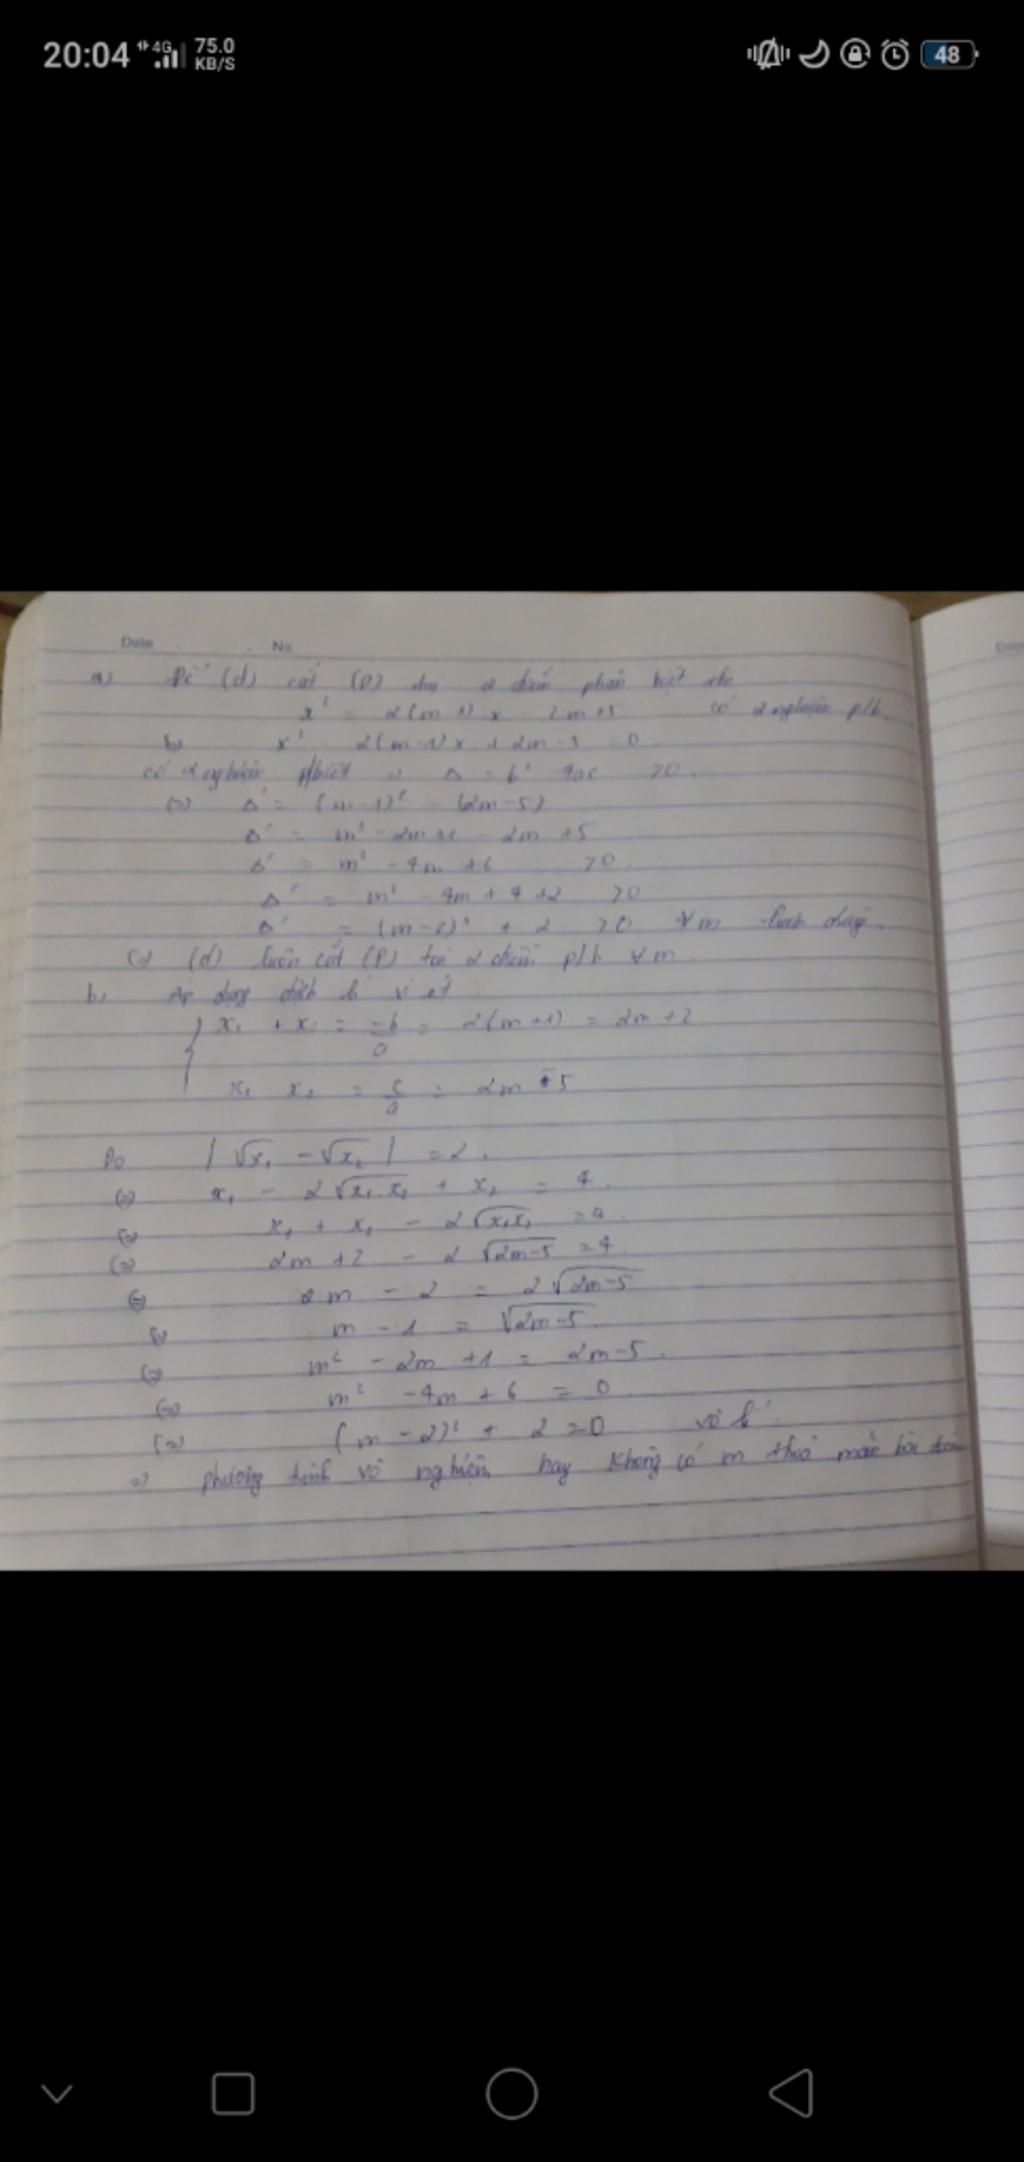 20:04 4G 75.0 KB/S 48
Date No Date
a) Để (d) cắt (P) tại 2 điểm phân biệt thì
x² = 2(m-1)x - 2m+5 có 2 nghiệm p/b
x² 2(m-1)x + 2m-5 = 0
có 2 nghiệm Δ = b² 4ac >0.
(=) Δ' = (m-1)² - (2m-5)
Δ' = m² - 2m +1 - 2m +5
Δ' = m² - 4m +6 >0.
Δ' = m² - 4m + 4 +2 >0
Δ' = (m-2)² + 2 >0 ∀m luôn đúng.
(=) (d) luôn cắt (P) tại 2 điểm p/b ∀m
b, Áp dụng định lí vi ét
x₁ + x₂ = -b/a = 2(m+1) = 2m+2
x₁ x₂ = c/a = 2m-5
Do |√x₁ - √x₂| = 2.
(=) x₁ - 2√x₁.x₂ + x₂ = 4.
(=) x₁ + x₂ - 2√x₁x₂ = 4.
(=) 2m+2 - 2√2m-5 = 4
(=) 2m - 2 = 2√2m-5
(=) m - 1 = √2m-5.
(=) m² - 2m +1 = 2m-5.
(=) m² - 4m + 6 = 0
(=) (m-2)² + 2 = 0 vô lí
=) phương trình vô nghiệm hay không có m thoả mãn bài toán